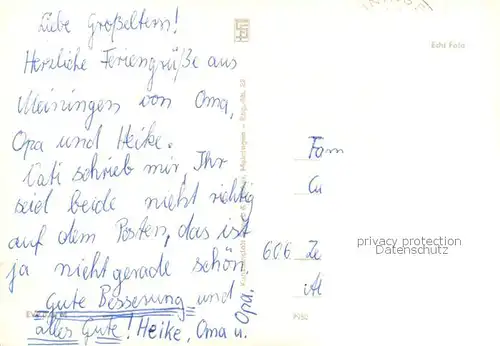 Liebe Großeltern!
Herzliche Feriengrüße aus
Meiningen von Oma,
Opa und Heike.
Vati schrieb mir, Ihr
seid beide nicht richtig
auf dem Posten, das ist
ja nicht gerade schön.
Gute Besserung und
alles Gute! Heike, Oma u.
Opa.
Echt Foto
Fam
606
privacy protection
Datenschutz